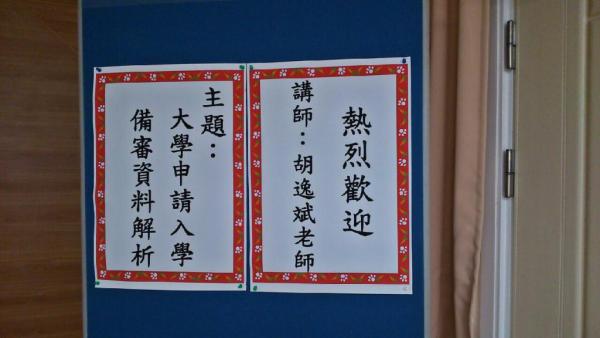 熱烈歡迎
講師：胡逸斌老師
主題：
大學申請入學
備審資料解析